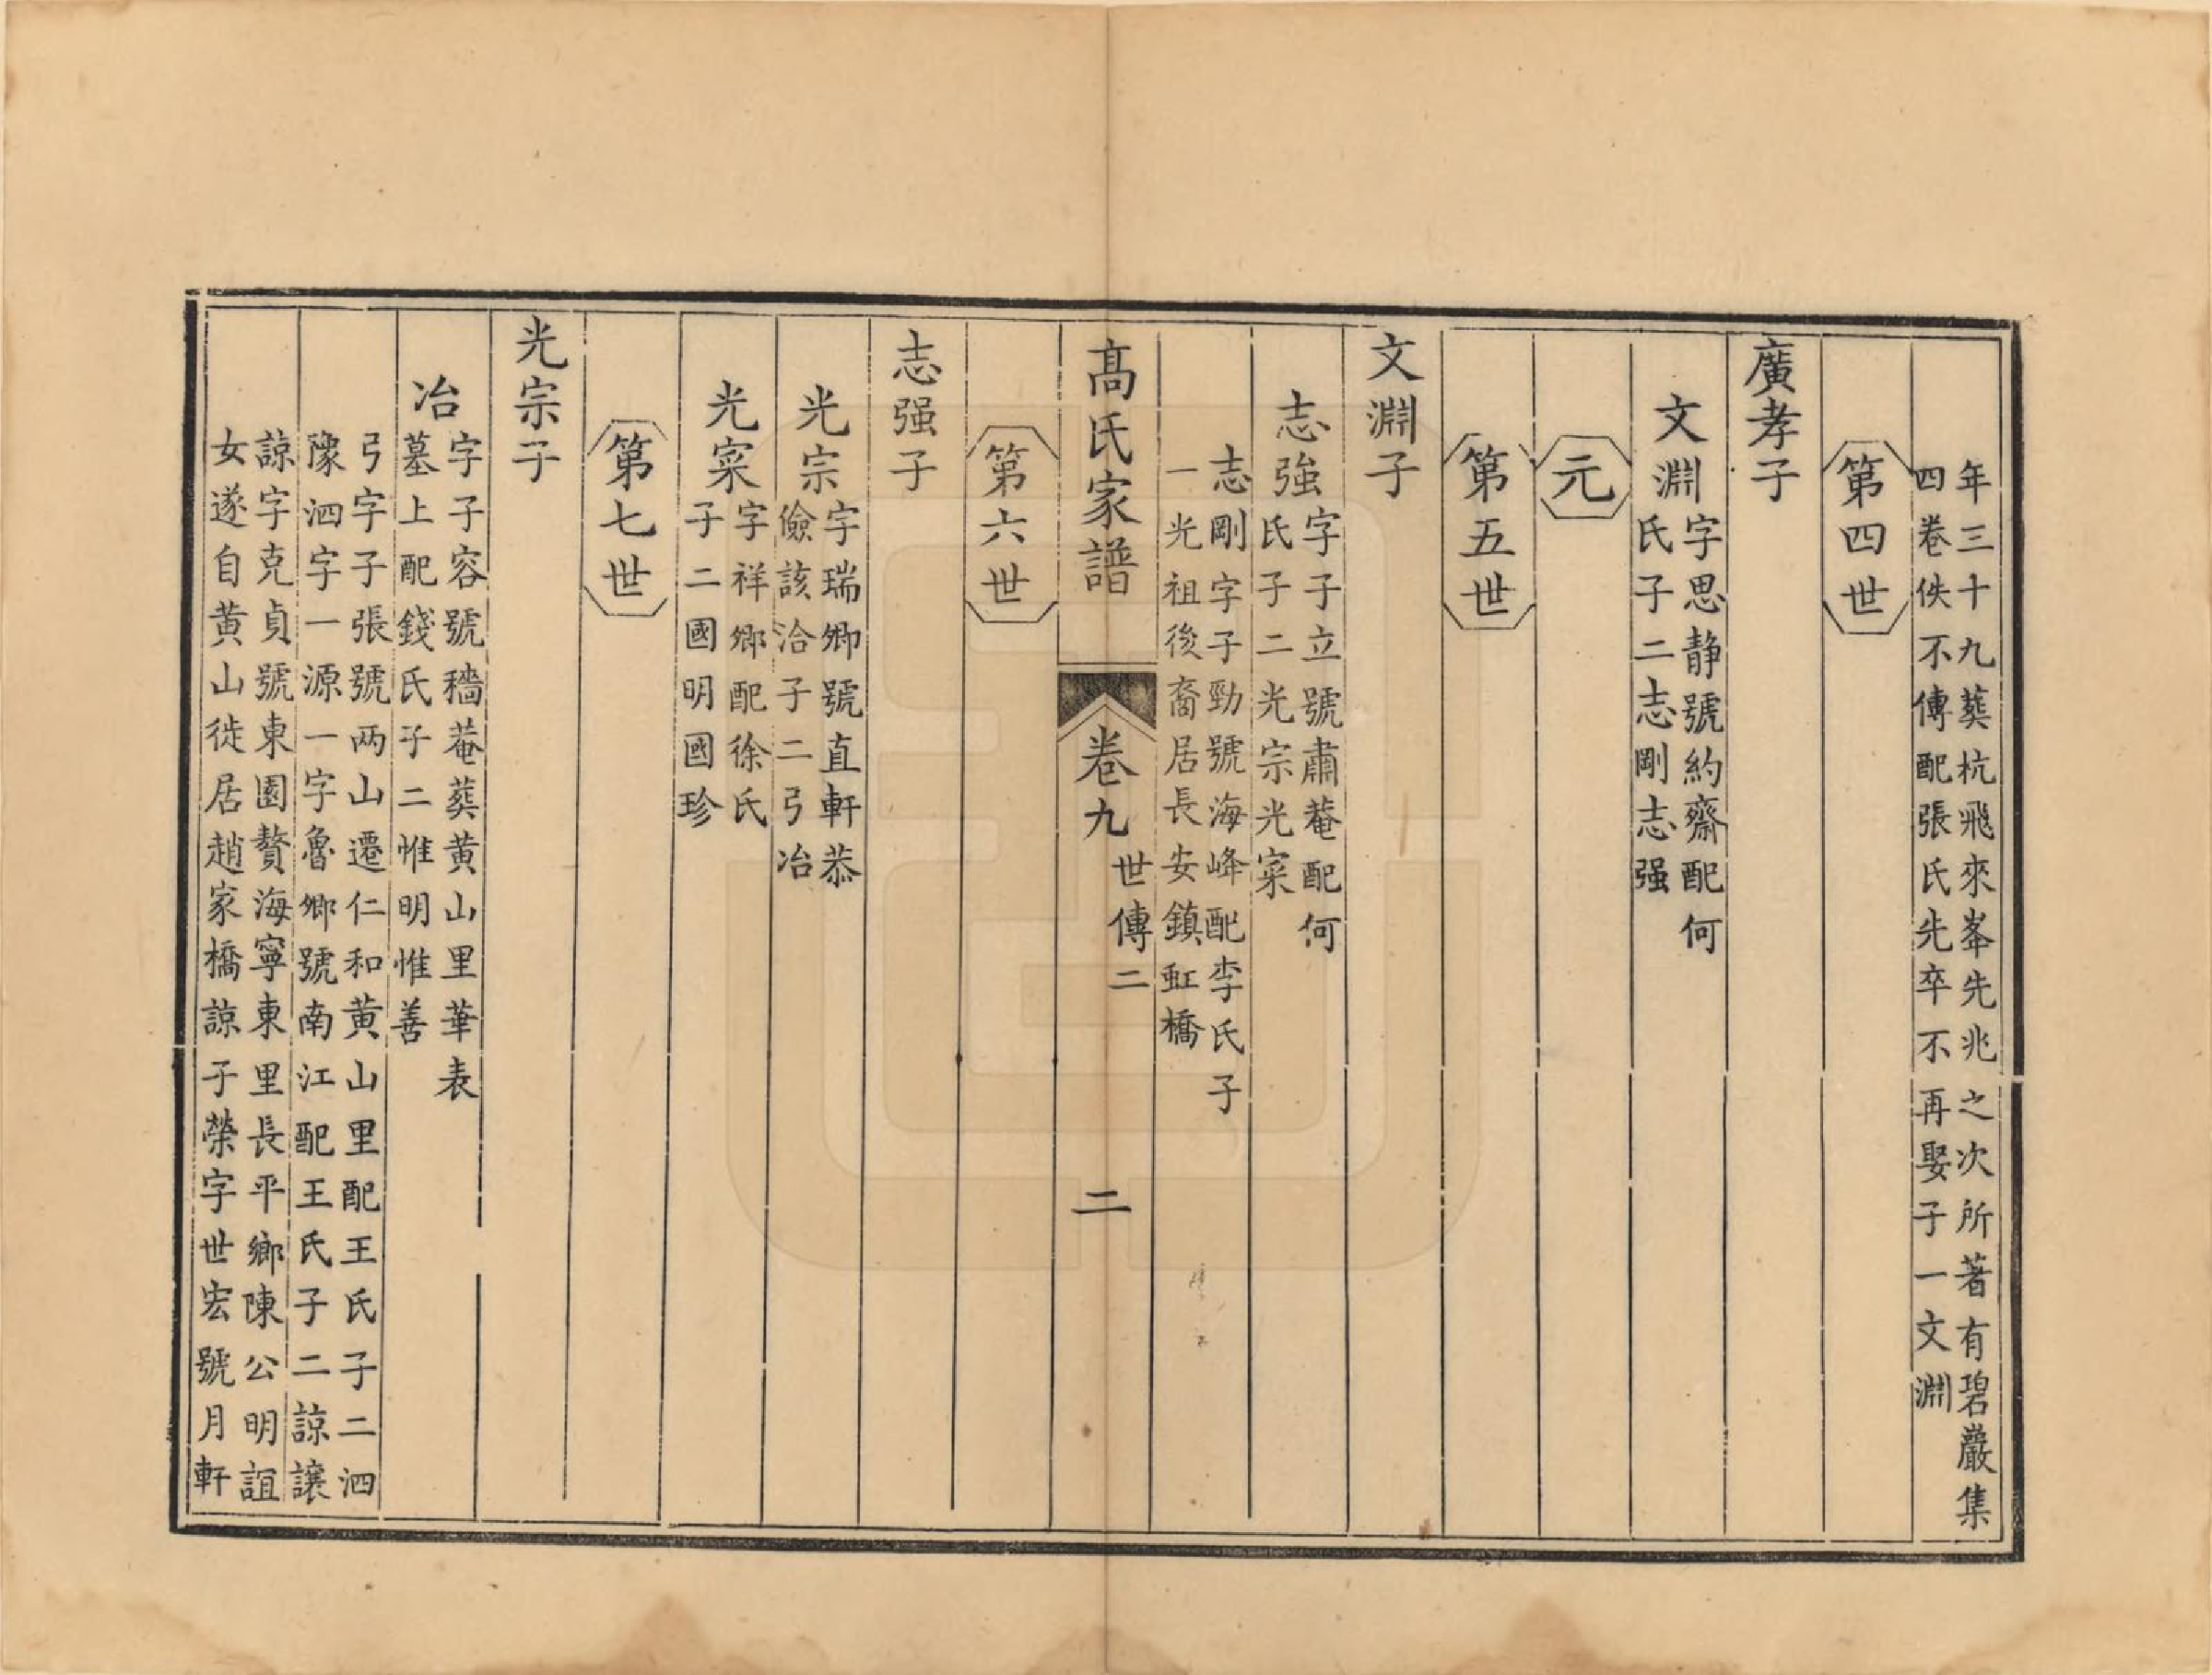 年三十九葬杭飛來峯先兆之次所著有碧巖集
四卷佚不傳配張氏先卒不再娶子一文淵
第四世
廣孝子
文淵
字思静號約齋配何
氏子二志剛志强
元
第五世
文淵子
志強
字子立號肅菴配何
氏子二光宗光寀
志剛字子勁號海峰配李氏子
一光祖後裔居長安鎮虹橋
高氏家譜
卷九
世傳二
二
第六世
志强子
光宗
字瑞卿號直軒恭
儉該洽子二弓冶
光寀
字祥卿配徐氏
子二國明國珍
第七世
光宗子
冶
字子容號穡菴葬黄山里華表
墓上配錢氏子二惟明惟善
弓字子張號两山遷仁和黄山里配王氏子二泗
豫泗字一源一字魯卿號南江配王氏子二諒讓
諒字克貞號東園贅海寧東里長平鄉陳公明誼
女遂自黄山徙居趙家橋諒子榮字世宏號月軒